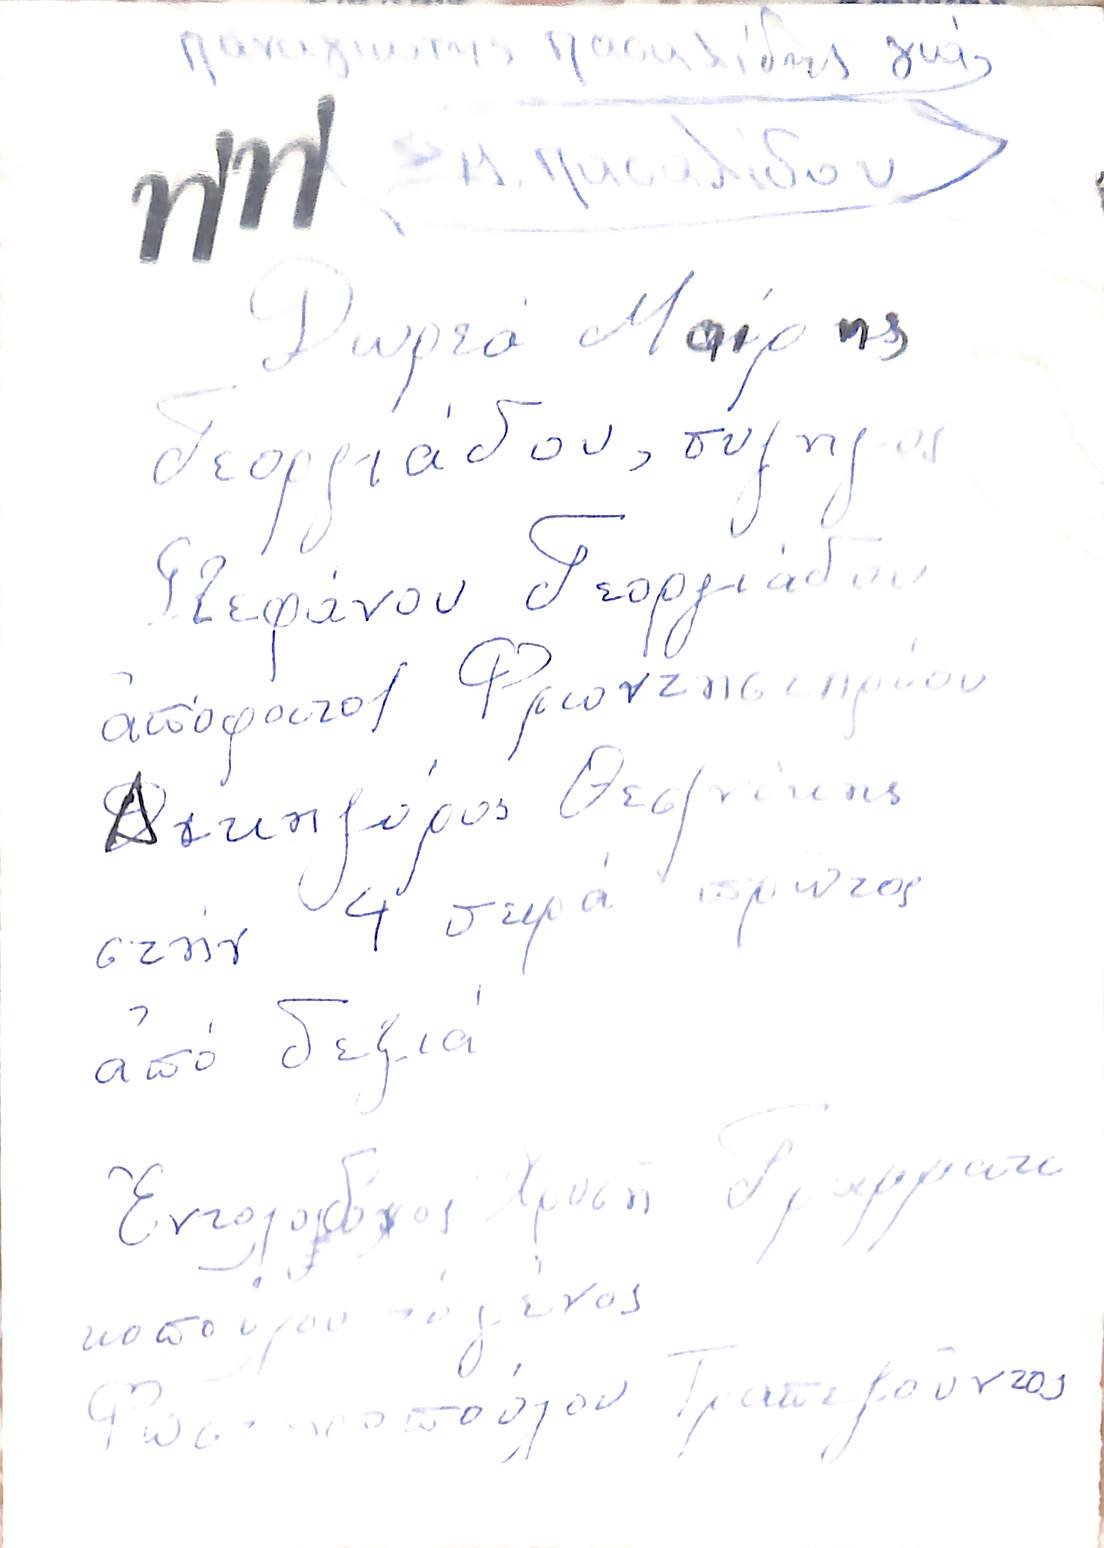 Παναγιώτης Πασαλίδης γιός
Σ Π. Πασαλίδου
ΠΠ
Δωρεά Μαίρης
Γεορχιάδου, συζηγος
Στεφάνου Γεοργιάδου
ἀπόφοιτος Φροντηστηρίου
Δικηγόρος Θεσ/νίκης
στήν 4 σειρά πρῶτος
ἀπό δεξιά
Ἐντολοδόχος Χρυσή Γραμματι
κοπούλου τό γένος
Τραπεζοῦντος